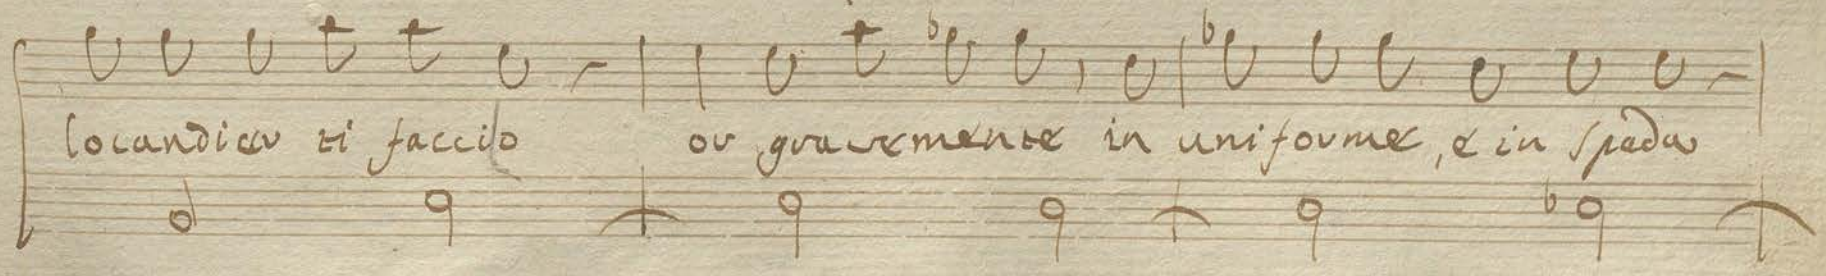 locandier ti faccio or gravemente in uniforme, e in spada